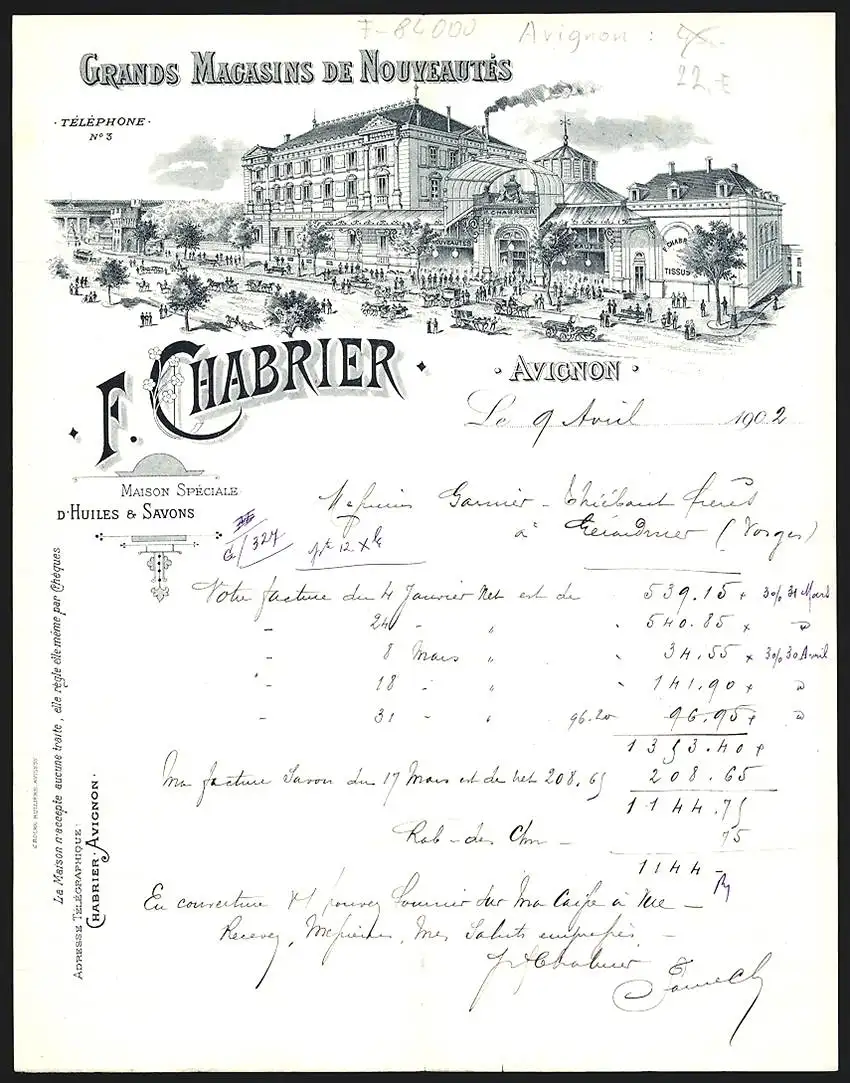 F-84000 Avignon :
22,-E
GRANDS MAGASINS DE NOUVEAUTÉS
· TÉLÉPHONE ·
Nº 3
F. CHABRIER
NOUVEAUTÉS
F. CHABR
TISSUS
F. CHABRIER
· AVIGNON ·
Le 9 Avril 1902
MAISON SPÉCIALE
D'HUILES & SAVONS
Messieurs Garnier - Thiébaut frères
à Gérardmer (Vosges)
327
Votre facture du 4 Janvier Net est de 539.15 3% 31 Mars
- 24 - " " 540.85 "
- 8 Mars " " 34.55 3% 30 Avril
- 18 - " " 141.90 "
- 31 - " 96.20 96.95 "
1353.40
Ma facture Savon du 17 Mars est de net 208.65 208.65
1144.75
75
1144 -
En couverture pouvez fournir sur ma Caisse à vue -
Recevez, Messieurs, Mes Saluts empressés -
Chabrier
La Maison n'accepte aucune traite, elle règle elle-même par Chèques
ADRESSE TÉLÉGRAPHIQUE:
CHABRIER · AVIGNON ·